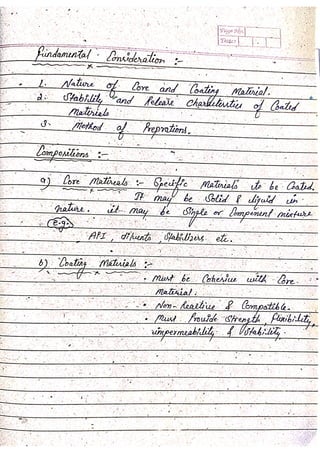 Fundamental Consideration :-
1. Nature of Core and Coating Material.
2. Stability and Release Characteristics of Coated
Materials
3. Method of Preprations.
Compositions :-
a) Core Materials :- Specific Materials to be Coated.
It may be Solid & liquid in
nature. it may be Single or Component mixture
E.g:-
API, diluents Stabilizers etc.
b) Coating Materials :-
• Must be Cohesive with Core
Material.
• Non-Reactive & Compatible.
• Must Provide Strength flexibility,
impermeability & Stability.